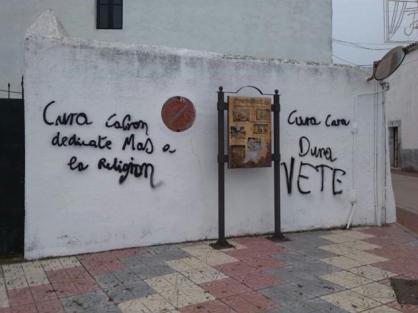 Cura CaBron
dedicate MaS a
la Religion
Cura Cara
Dura
VETE